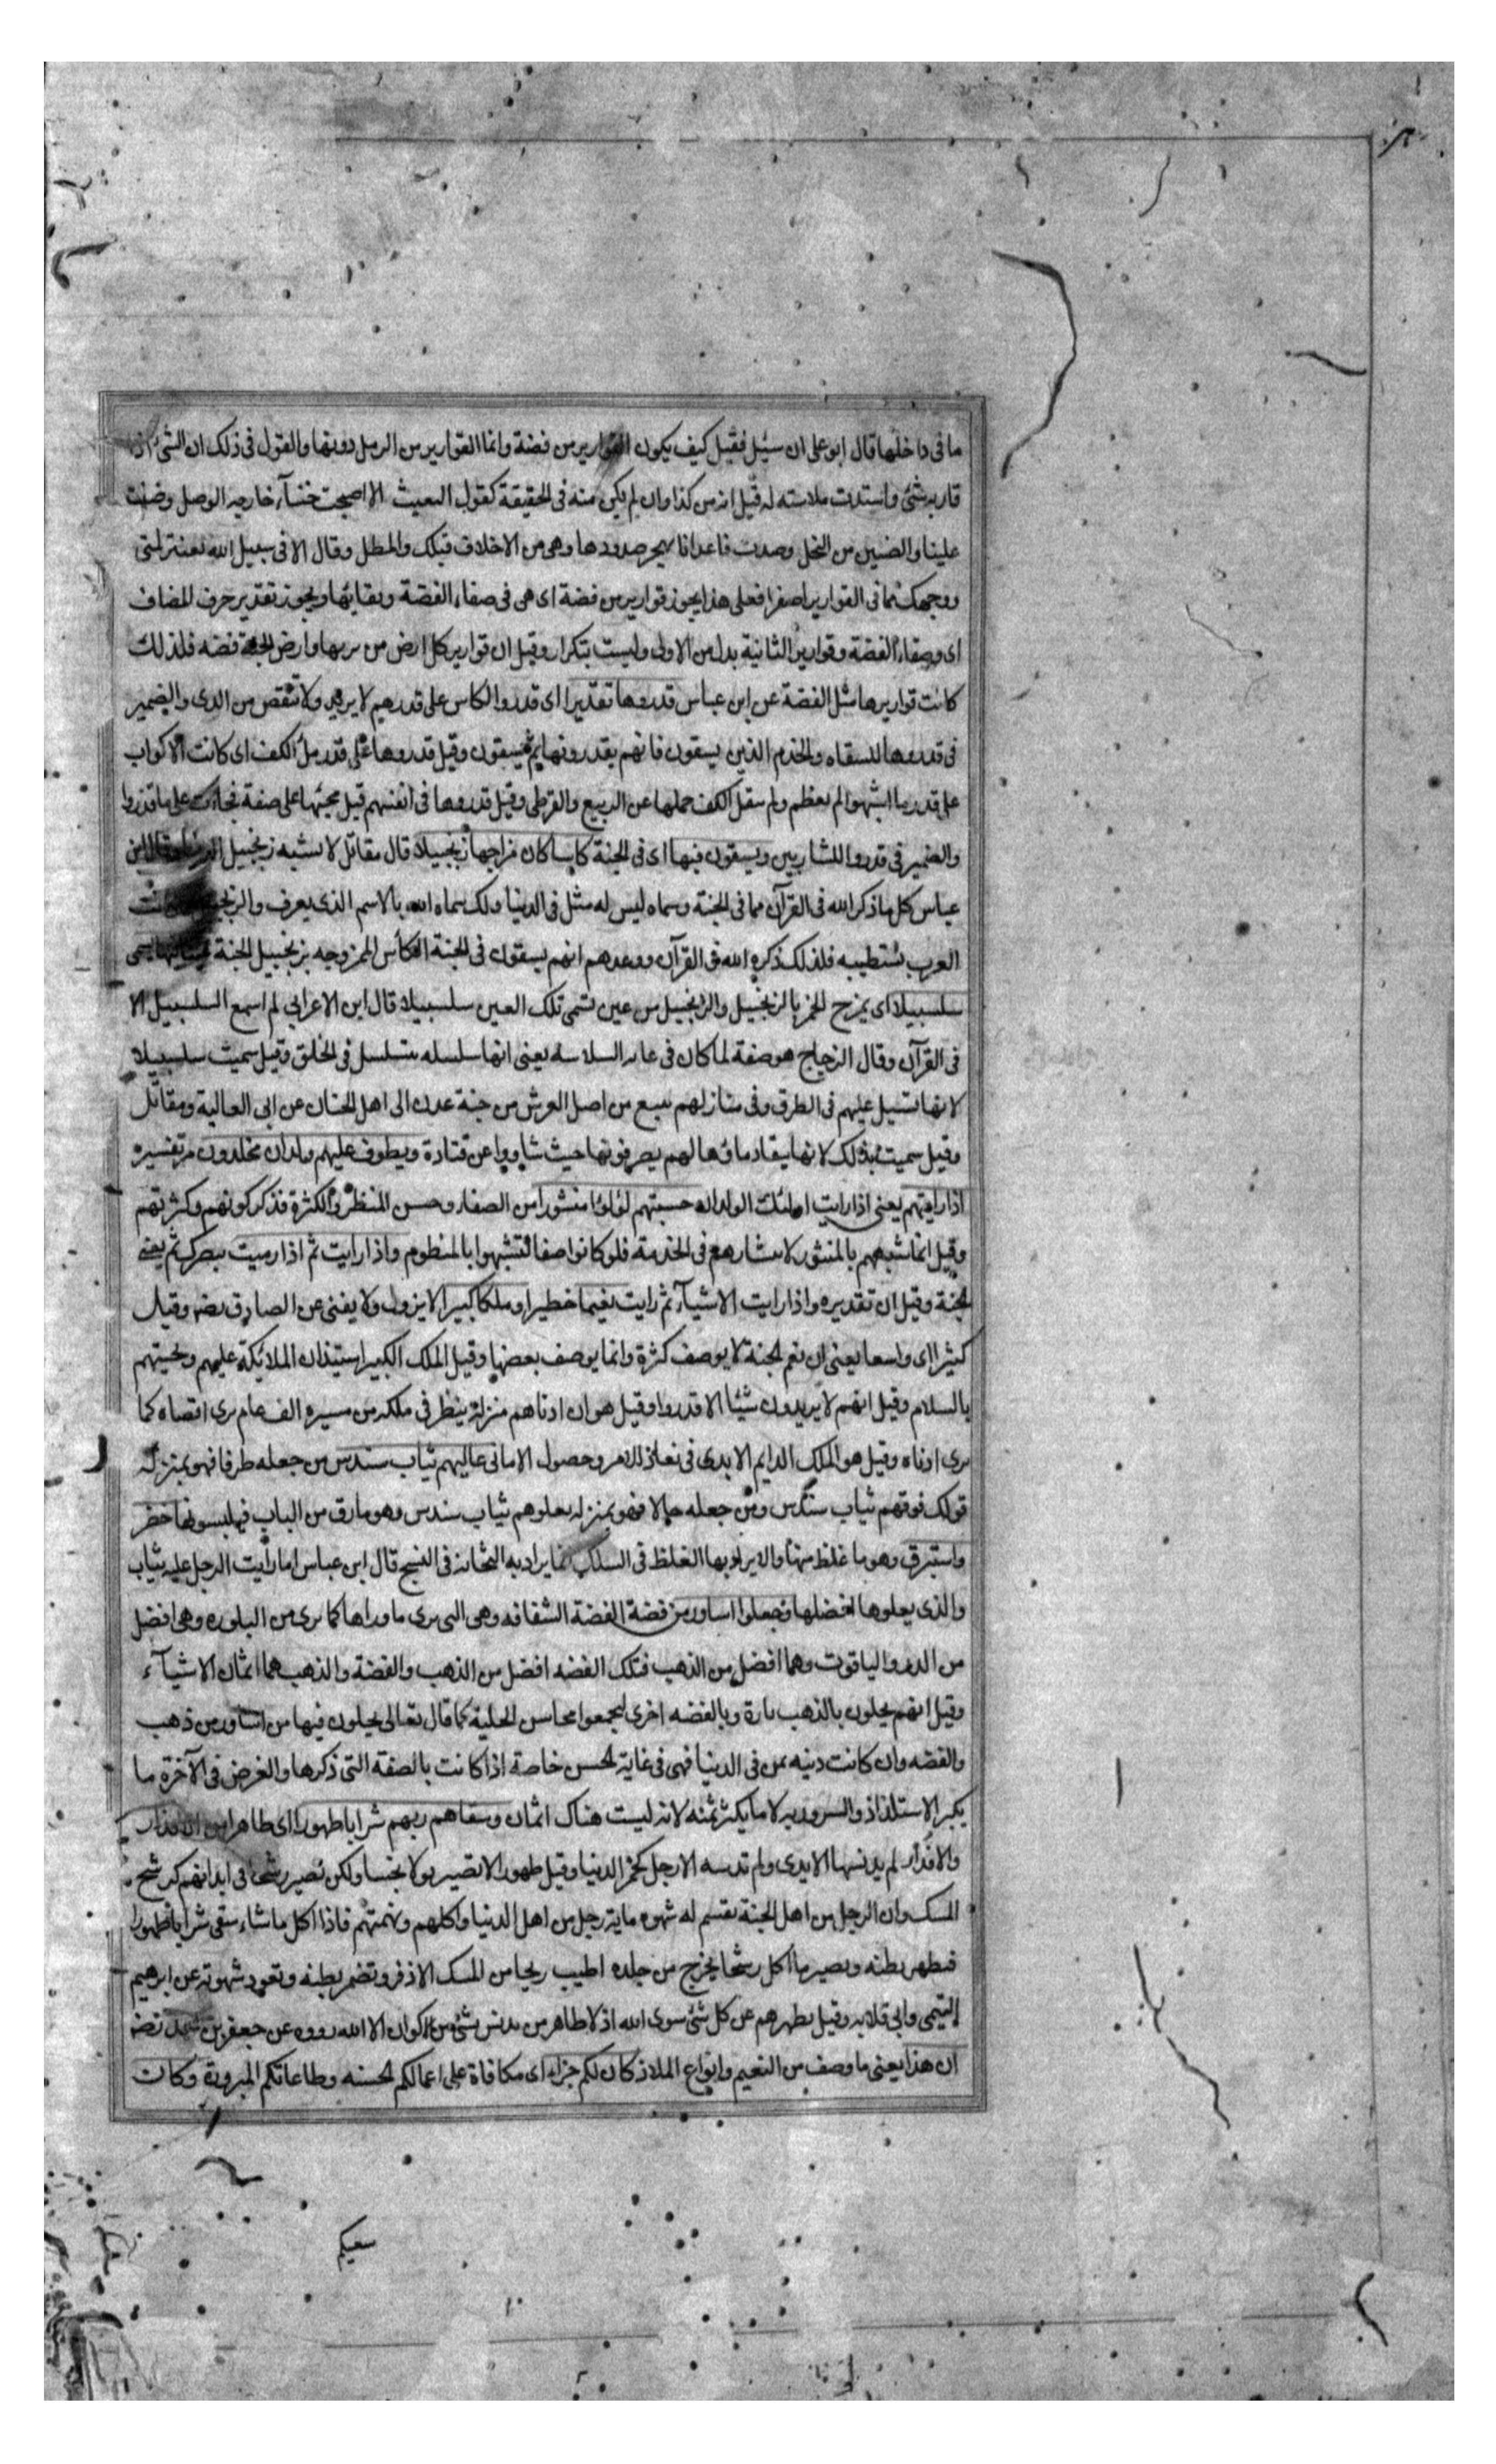 ما فى داخلها قال ابو على ان سئل فقيل كيف يكون القوارير من فضة وانما القوارير من الرمل دونها والقول فى ذلك ان الشئ اذا
قاربه شئ واستدت ملابسته له قيل انه من كذا وان لم يكن منه فى الحقيقة كقول البعيث الا اصبحت خنسآء خارجه الوصل وضنت
علينا والضنين من البخل وصدت فاعدانا بهجر صدودها وهى من الاخلاف قبلك والمطل وقال الا فى سبيل الله
ووجهك مما فى القوارير اصفرا فعلى هذا يجوز قوارير من فضة اى هى فى صفاء الفضة ونقائها ويجوز تقدير حرف المضاف
اى من صفاء الفضة وقوارير الثانية بدل من الاولى وليست بتكرار وقيل ان قوارير كل ارض من تربها وارض الجنة فضه فلذلك
كانت قواريرها مثل الفضة عن ابن عباس قدروها تقديرا اى قدروا الكاس على قدر ريهم لا يزيد ولا تنقص من الرى والضمير
فى قدروها للسقاه والخدم الذين يسقون فانهم يقدرونها ثم يسقون وقيل قدروها على قدر ملأ الكف اى كانت الاكواب
على قدر ما اشتهوا لم يعظم ولم يثقل الكف حملها عن الربيع والقرظى وقيل قدروها فى انفسهم قبل مجيئها على صفة فجاءت على ما قدروا
والضمير فى قدروا للشاربين ويسقون فيها اى فى الجنة كاسا كان مزاجها زنجبيلا قال مقاتل لا يشبه زنجبيل الدنيا وقال ابن
عباس كل ما ذكر الله فى القرآن مما فى الجنة وسماه ليس له مثل فى الدنيا ولكن سماه الله بالاسم الذى يعرف والزنجبيل مما كانت
العرب تستطيبه فلذلك ذكره الله فى القرآن ووعدهم انهم يسقون فى الجنة الكأس الممزوجه بزنجبيل الجنة عينا فيها تسمى
سلسبيلا اى يمزج الخمر بالزنجبيل والزنجبيل من عين تسمى تلك العين سلسبيلا قال ابن الاعرابي لم اسمع السلسبيل الا
فى القرآن وقال الزجاج هو صفة لما كان فى غايه السلاسه يعنى انها سلسله يتسلسل فى الخلق وقيل سميت سلسبيلا
لانها تسيل عليهم فى الطرق وفى منازلهم ينبع من اصل العرش من جنة عدن الى اهل الجنان عن ابى العالية ومقاتل
وقيل سميت بذلك لانها ينقاد ماؤها لهم يصرفونها حيث شاووا عن قتادة ويطوف عليهم ولدان مخلدون مر تفسيره
اذا رايتهم يعنى اذا رايت اولئك الولدان حسبتهم لؤلؤا منثورا من الصفاء وحسن المنظر والكثرة فذكر كونهم وكثرتهم
وقيل انما شبههم بالمنثور لانتشارهم فى الخدمة فلو كانوا صفا لتشبهوا بالمنظوم واذا رايت ثم اذا رميت ببصرك ثم يعنى
الجنة وقيل ان تقديره واذا رايت الاشيآء ثم رايت نعيما خطيرا وملكا كبيرا لا يزول ولا يفنى عن الصادق وقيل
كثيرا اى واسعا يعنى ان نعم الجنة لا يوصف كثرة وانما يوصف بعضها وقيل الملك الكبير استيذان الملائكة عليهم وتحيتهم
بالسلام وقيل انهم لا يريدون شيئا الا قدروا وقيل هو ان ادناهم منزلة ينظر فى ملكه من مسيره الف عام يرى اقصاه كما
يرى ادناه وقيل هو الملك الدايم الابدى فى نفاذ الامر وحصول الامانى عاليهم ثياب سندس من جعله ظرفا فهو بمنزلة
قولك فوقهم ثياب سندس ومن جعله حالا فهو بمنزله يعلوهم ثياب سندس وهو مارق من الثياب فيلبسونها خضر
واستبرق وهو ما غلظ منها ولا يراد بها الغلظ فى السلك انما يراد به الثخانة فى النسج قال ابن عباس اما رأيت الرجل عليه ثياب
والذى يعلوها افضلها وحلوا اساور من فضة الفضة الشفافه وهى التى يرى ما وراها كما يرى من البلوره وهى افضل
من الدر والياقوت وهما افضل من الذهب فتلك الفضه افضل من الذهب والفضة والذهب هما اثمان الاشيآء
وقيل انهم يحلون بالذهب تارة وبالفضه اخرى ليجمعوا محاسن الحلية كما قال تعالى يحلون فيها من اساور من ذهب
والفضه وان كانت دنيه ثمن فى الدنيا فهى فى غاية الحسن خاصة اذا كانت بالصفة التى ذكرها والغرض فى الآخرة ما
يكثر الاستلذاذ والسرور به لا ما يكثر ثمنه لانه ليست هناك اثمان وسقاهم ربهم شرابا طهورا اى طاهرا من الاقذار
والاقذار لم يدنسها الايدى ولم تدسه الارجل كخمر الدنيا وقيل طهورا لا تصير بولا نجسا ولكن تصير رشحا فى ابدانهم كرشح
المسك وان الرجل من اهل الجنة يقسم له شهوه ماية رجل من اهل الدنيا واكلهم ونهمتهم فاذا اكل ما شاء سقى شرابا طهورا
فيطهر بطنه ويصير ما اكل رشحا يخرج من جلده اطيب ريحا من المسك الاذفر وتضمر بطنه وتعود شهوته عن ابرهيم
التيمى وابى قلابه وقيل يطهرهم عن كل شئ سوى الله اذ لا طاهر من تدنس بشئ من الاكوان الا الله رووه عن جعفر بن محمد
ان هذا يعنى ما وصف من النعيم وانواع الملاذ كان لكم جزاء اى مكافاة على اعمالكم الحسنه وطاعاتكم المبرورة وكان
سعيكم